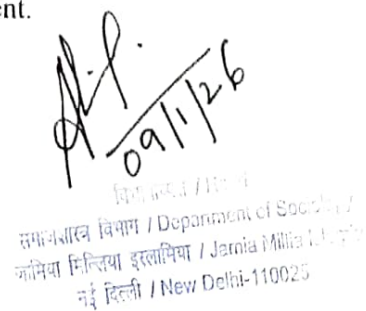 ent.
09/1/26
समाजशास्त्र विभाग / Department of Sociology
जामिया मिल्लिया इस्लामिया / Jamia Millia
नई दिल्ली / New Delhi-110025